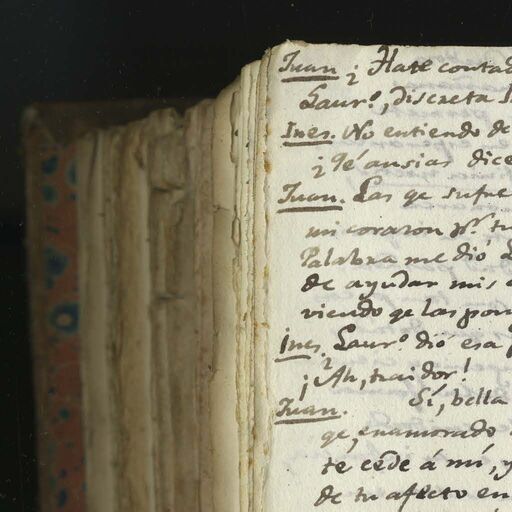 Juan. ¿Hate contad
Laur.º, discreta I
Ines. No entiendo de
¿Qé ansias dice
Juan. Las qe sufre
mi corazon pr. tu
Palabra me dió L
de ayudar mis a
viendo qe las pon
Ines. Laur.º dió esa p
¡Ah, traidor!
Juan. Sí, bella
qe, enamorado
te cede á mí, y
de tu afecto en